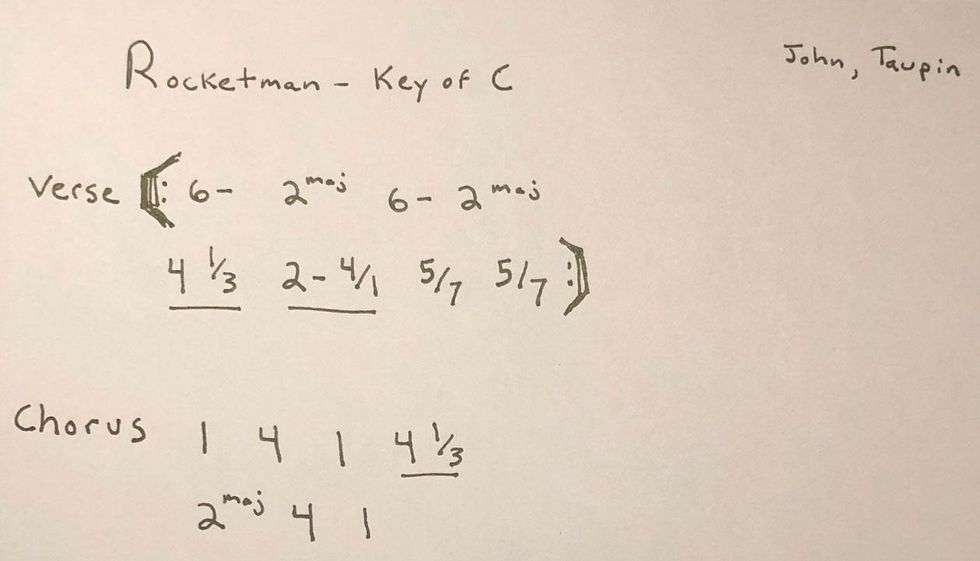 Rocketman - Key of C
John, Taupin
Verse ‖: 6- 2maj 6- 2maj
4 1/3 2- 4/1 5/7 5/7 :‖
Chorus 1 4 1 4 1/3
2maj 4 1